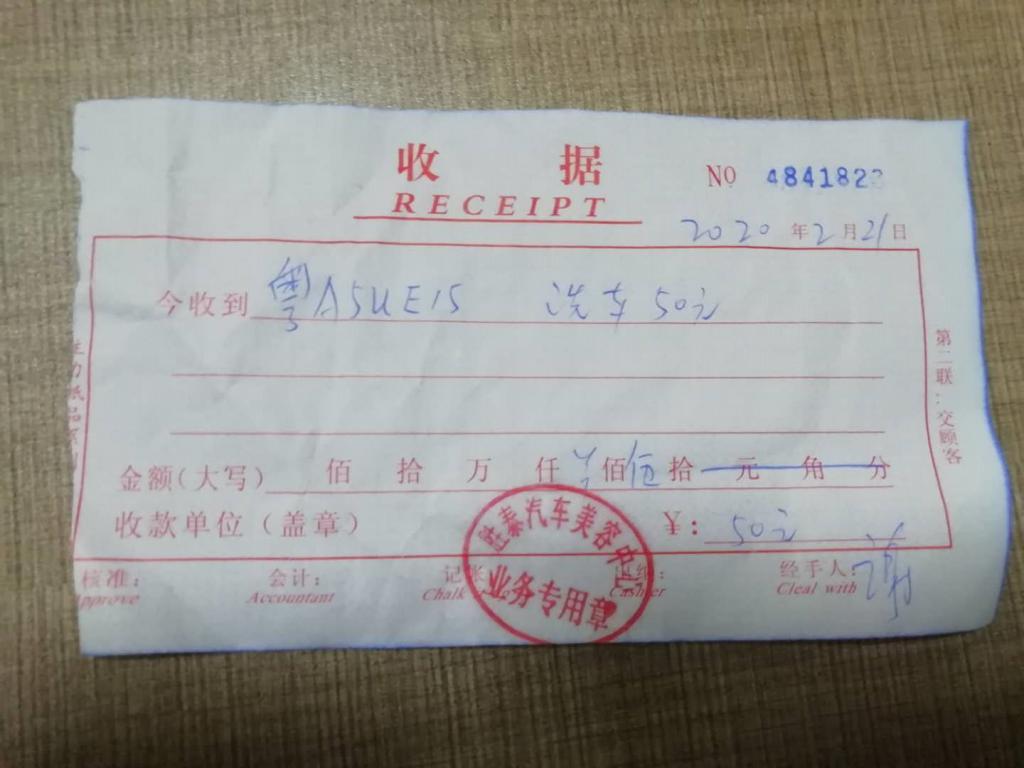 收 据
RECEIPT
No 4841823
2020 年 2 月 21 日
今收到 粤A5UE15 洗车 50元
金额(大写) 佰 拾 万 仟 佰 伍 拾 元 角 分
收款单位（盖章） ¥: 50元
核准: 会计: 记账 出纳: 经手人: 谢
Approve Accountant Chalk Cashier Cleal with
胜泰汽车美容中心
业务专用章
第二联:交顾客